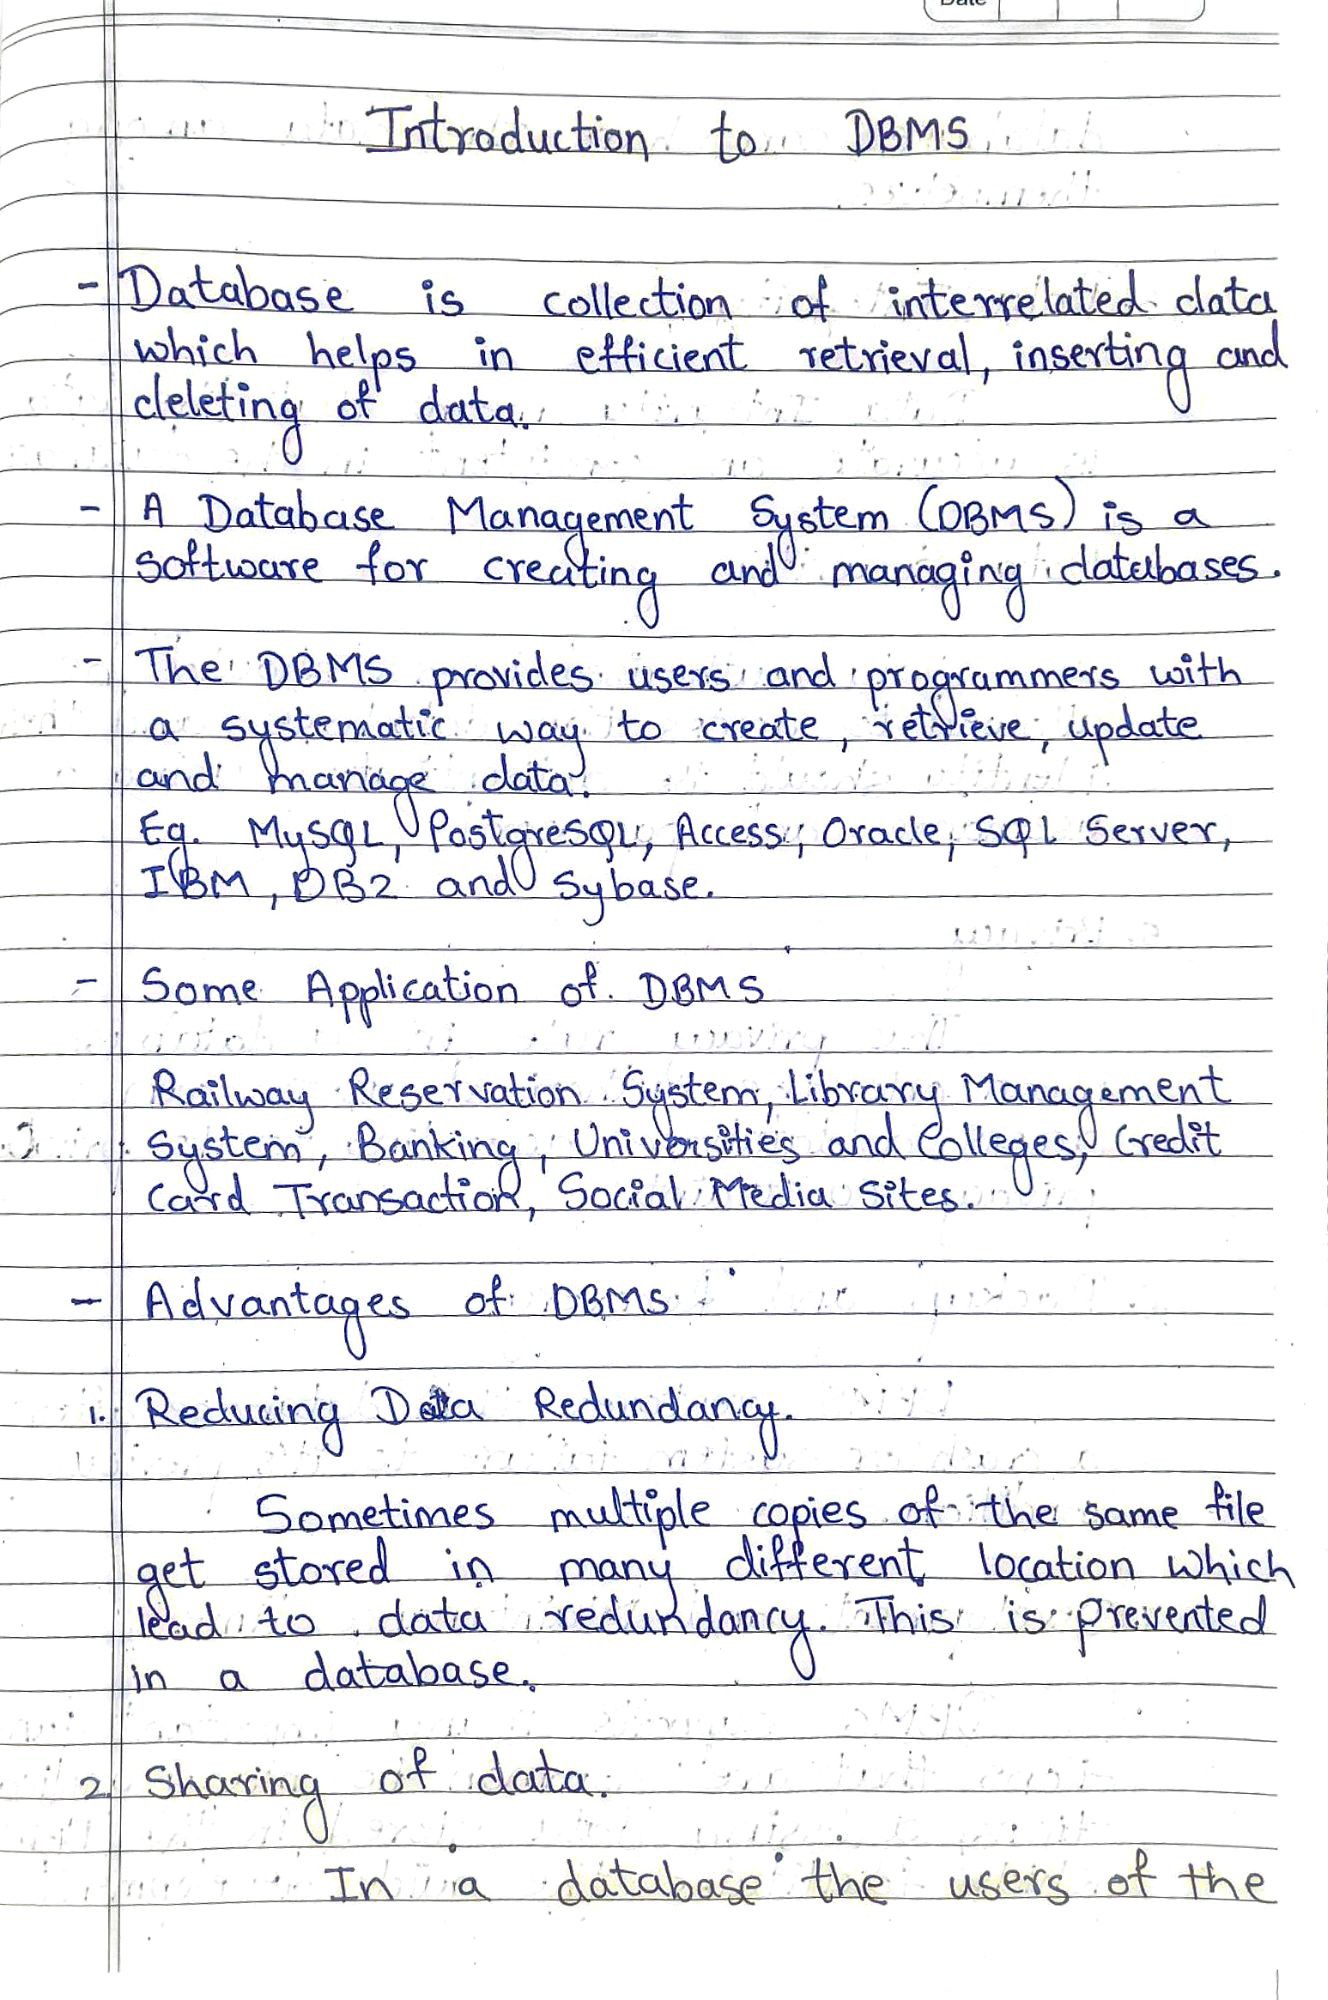 Date
Introduction to DBMS
- Database is collection of interrelated data
which helps in efficient retrieval, inserting and
deleting of data.
- A Database Management System (DBMS) is a
software for creating and managing databases.
- The DBMS provides users and programmers with
a systematic way to create, retrieve, update
and manage data.
Eg. MySQL, PostgreSQL, Access, Oracle, SQL Server,
IBM, DB2 and Sybase.
- Some Application of DBMS
Railway Reservation System, Library Management
System, Banking, Universities and Colleges, Credit
Card Transaction, Social Media Sites.
- Advantages of DBMS
1. Reducing Data Redundancy.
Sometimes multiple copies of the same file
get stored in many different location which
lead to data redundancy. This is prevented
in a database.
2. Sharing of data.
In a database the users of the